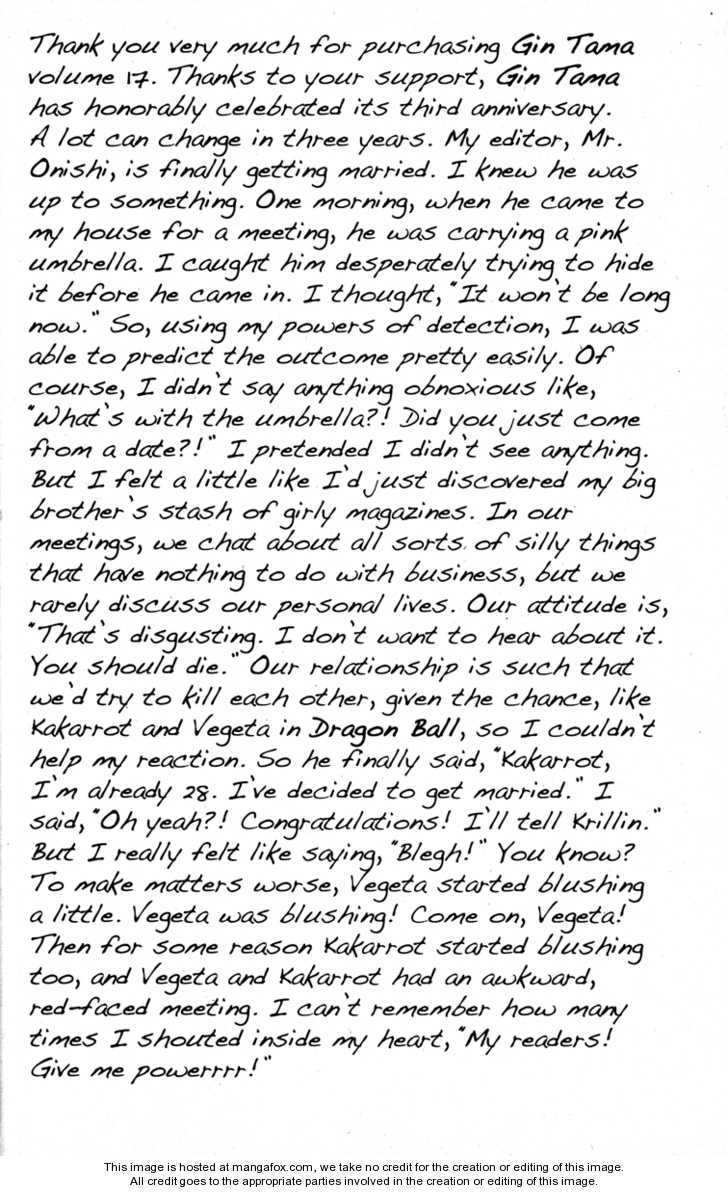 Thank you very much for purchasing Gin Tama
volume 17. Thanks to your support, Gin Tama
has honorably celebrated its third anniversary.
A lot can change in three years. My editor, Mr.
Onishi, is finally getting married. I knew he was
up to something. One morning, when he came to
my house for a meeting, he was carrying a pink
umbrella. I caught him desperately trying to hide
it before he came in. I thought, "It won't be long
now." So, using my powers of detection, I was
able to predict the outcome pretty easily. Of
course, I didn't say anything obnoxious like,
"What's with the umbrella?! Did you just come
from a date?!" I pretended I didn't see anything.
But I felt a little like I'd just discovered my big
brother's stash of girly magazines. In our
meetings, we chat about all sorts of silly things
that have nothing to do with business, but we
rarely discuss our personal lives. Our attitude is,
"That's disgusting. I don't want to hear about it.
You should die." Our relationship is such that
we'd try to kill each other, given the chance, like
Kakarrot and Vegeta in Dragon Ball, so I couldn't
help my reaction. So he finally said, "Kakarrot,
I'm already 28. I've decided to get married." I
said, "Oh yeah?! Congratulations! I'll tell Krillin."
But I really felt like saying, "Blegh!" You know?
To make matters worse, Vegeta started blushing
a little. Vegeta was blushing! Come on, Vegeta!
Then for some reason Kakarrot started blushing
too, and Vegeta and Kakarrot had an awkward,
red-faced meeting. I can't remember how many
times I shouted inside my heart, "My readers!
Give me powerrrr!"
This image is hosted at mangafox.com, we take no credit for the creation or editing of this image.
All credit goes to the appropriate parties involved in the creation or editing of this image.